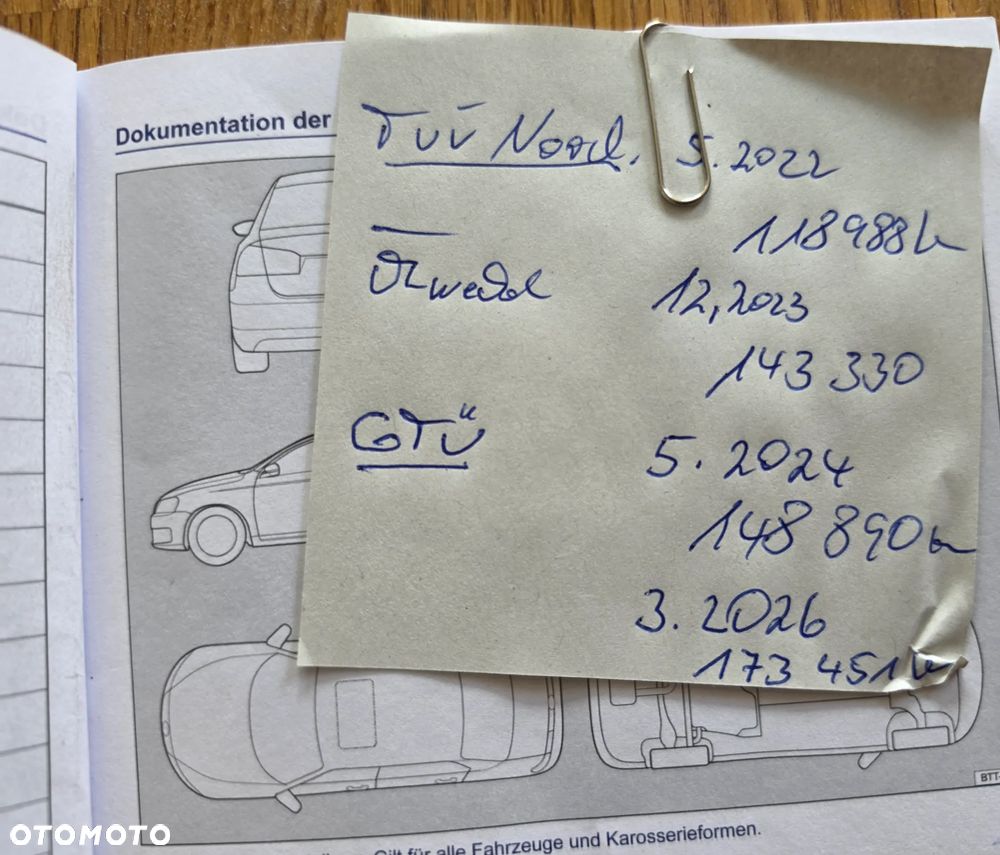 Dokumentation der
TÜV Noord. 5.2022
118988k
12,2023
143 330
GTÜ 5.2024
148 890k
3.2026
173 451k
BTT-
Gilt für alle Fahrzeuge und Karosserieformen.
OTOMOTO